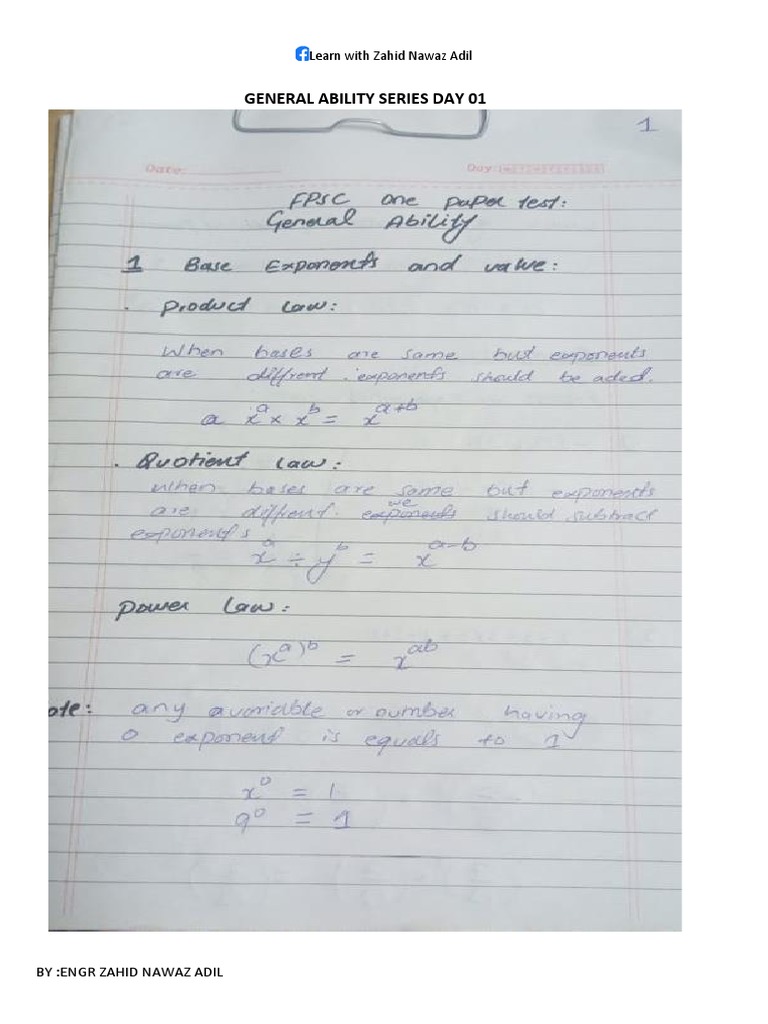 Learn with Zahid Nawaz Adil
GENERAL ABILITY SERIES DAY 01
1
Date:
Day:
FPSC one paper test:
General Ability
1 Base Exponents and value:
. Product Law:
When bases are same but exponents
are diffrent . exponents should be aded.
a xᵃ × xᵇ = xᵃ⁺ᵇ
. Quotient Law:
When bases are same but exponents
are diffrent. we exponents should subtract
exponents
xᵃ ÷ yᵇ = xᵃ⁻ᵇ
Power Law:
(xᵃ)ᵇ = xᵃᵇ
ote: any a variable or number having
0 exponent is equals to 1
x⁰ = 1
9⁰ = 1
BY :ENGR ZAHID NAWAZ ADIL